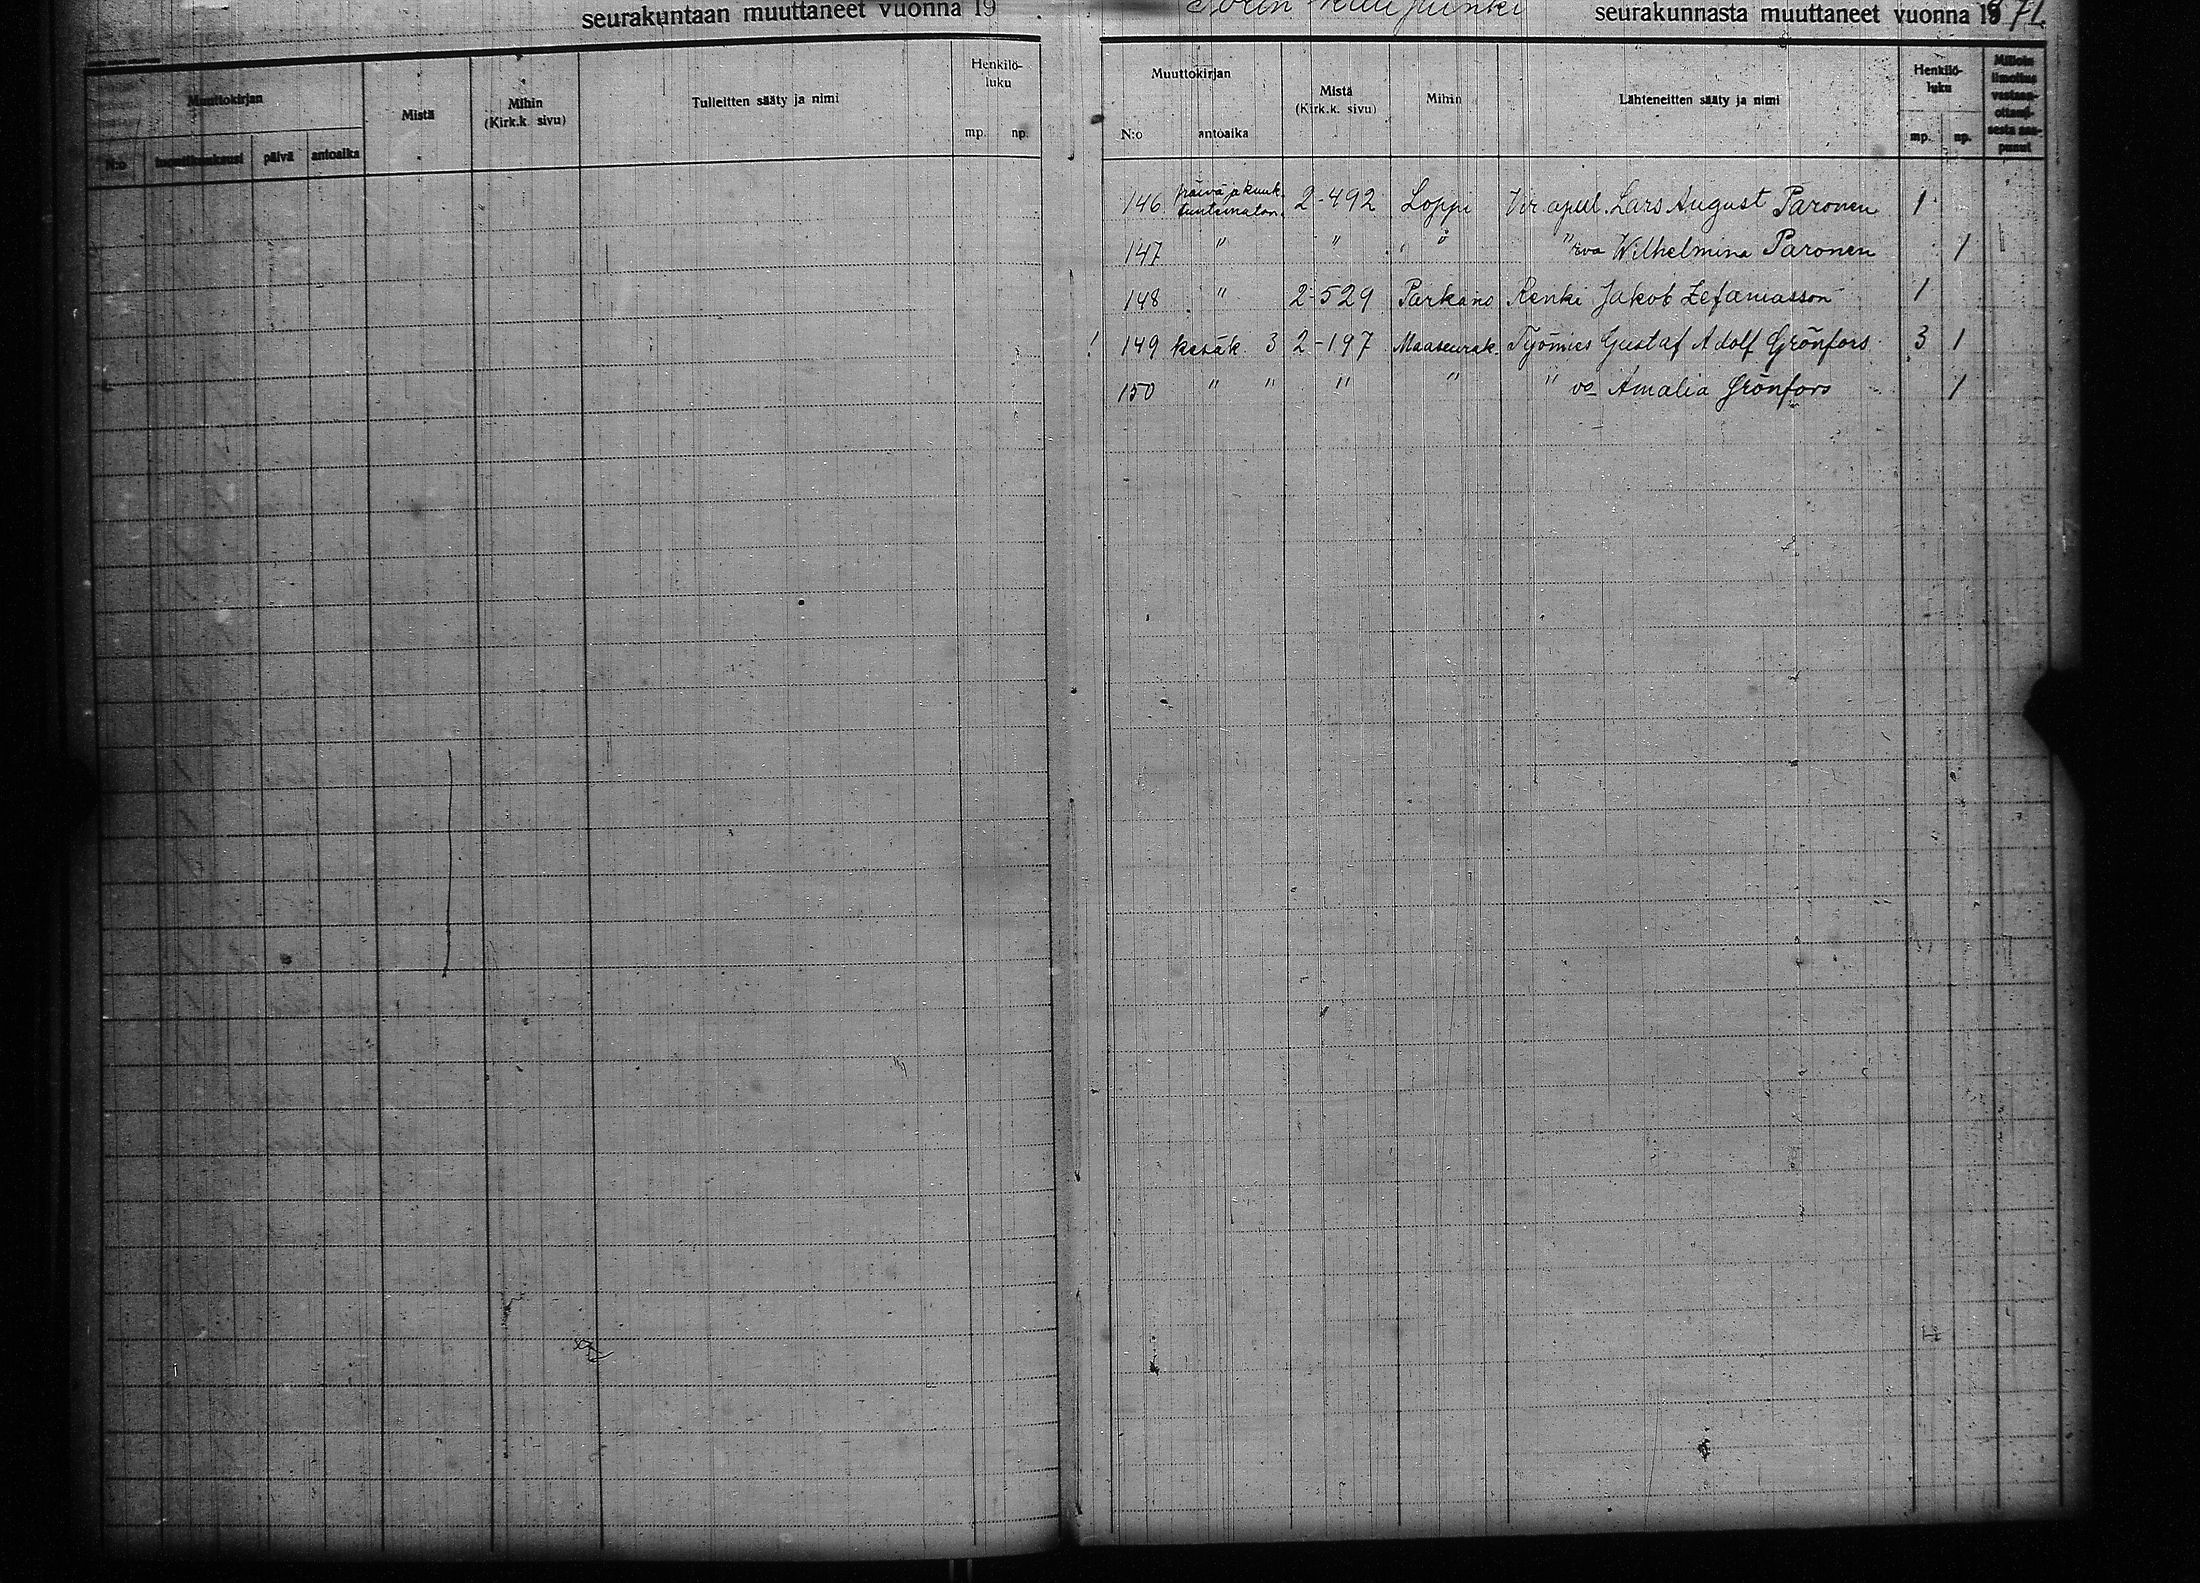 seurakuntaan muuttaneet vuonna 19
Muuttokirjan Mistä Mihin (Kirk.k. sivu) Tulleitten sääty ja nimi Henkilö-luku
N:o päivä antoaika mp. np.
Porin kaupunki seurakunnasta muuttaneet vuonna 1871.
Muuttokirjan Mistä (Kirk.k. sivu) Mihin Lähteneitten sääty ja nimi Henkilö-luku Milloin ilmoitus vastaan-ottami-sesta saa-punut
N:o antoaika mp. np.
146 päivä ja kuuk. tuntematon. 2-492 Loppi Vir. apul. Lars August Paronen 1
147 " " " " rva Wilhelmina Paronen 1
148 " 2-529 Parkano Renki Jakob Zefaniasson 1
! 149 kesäk. 3 2-197 Maaseurak. Työmies Gustaf Adolf Grönfors 3 1
150 " " " " " vo Amalia Grönfors 1